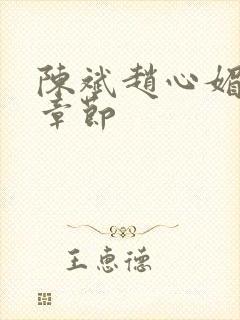 陳斌趙心媚
章節
王惠德